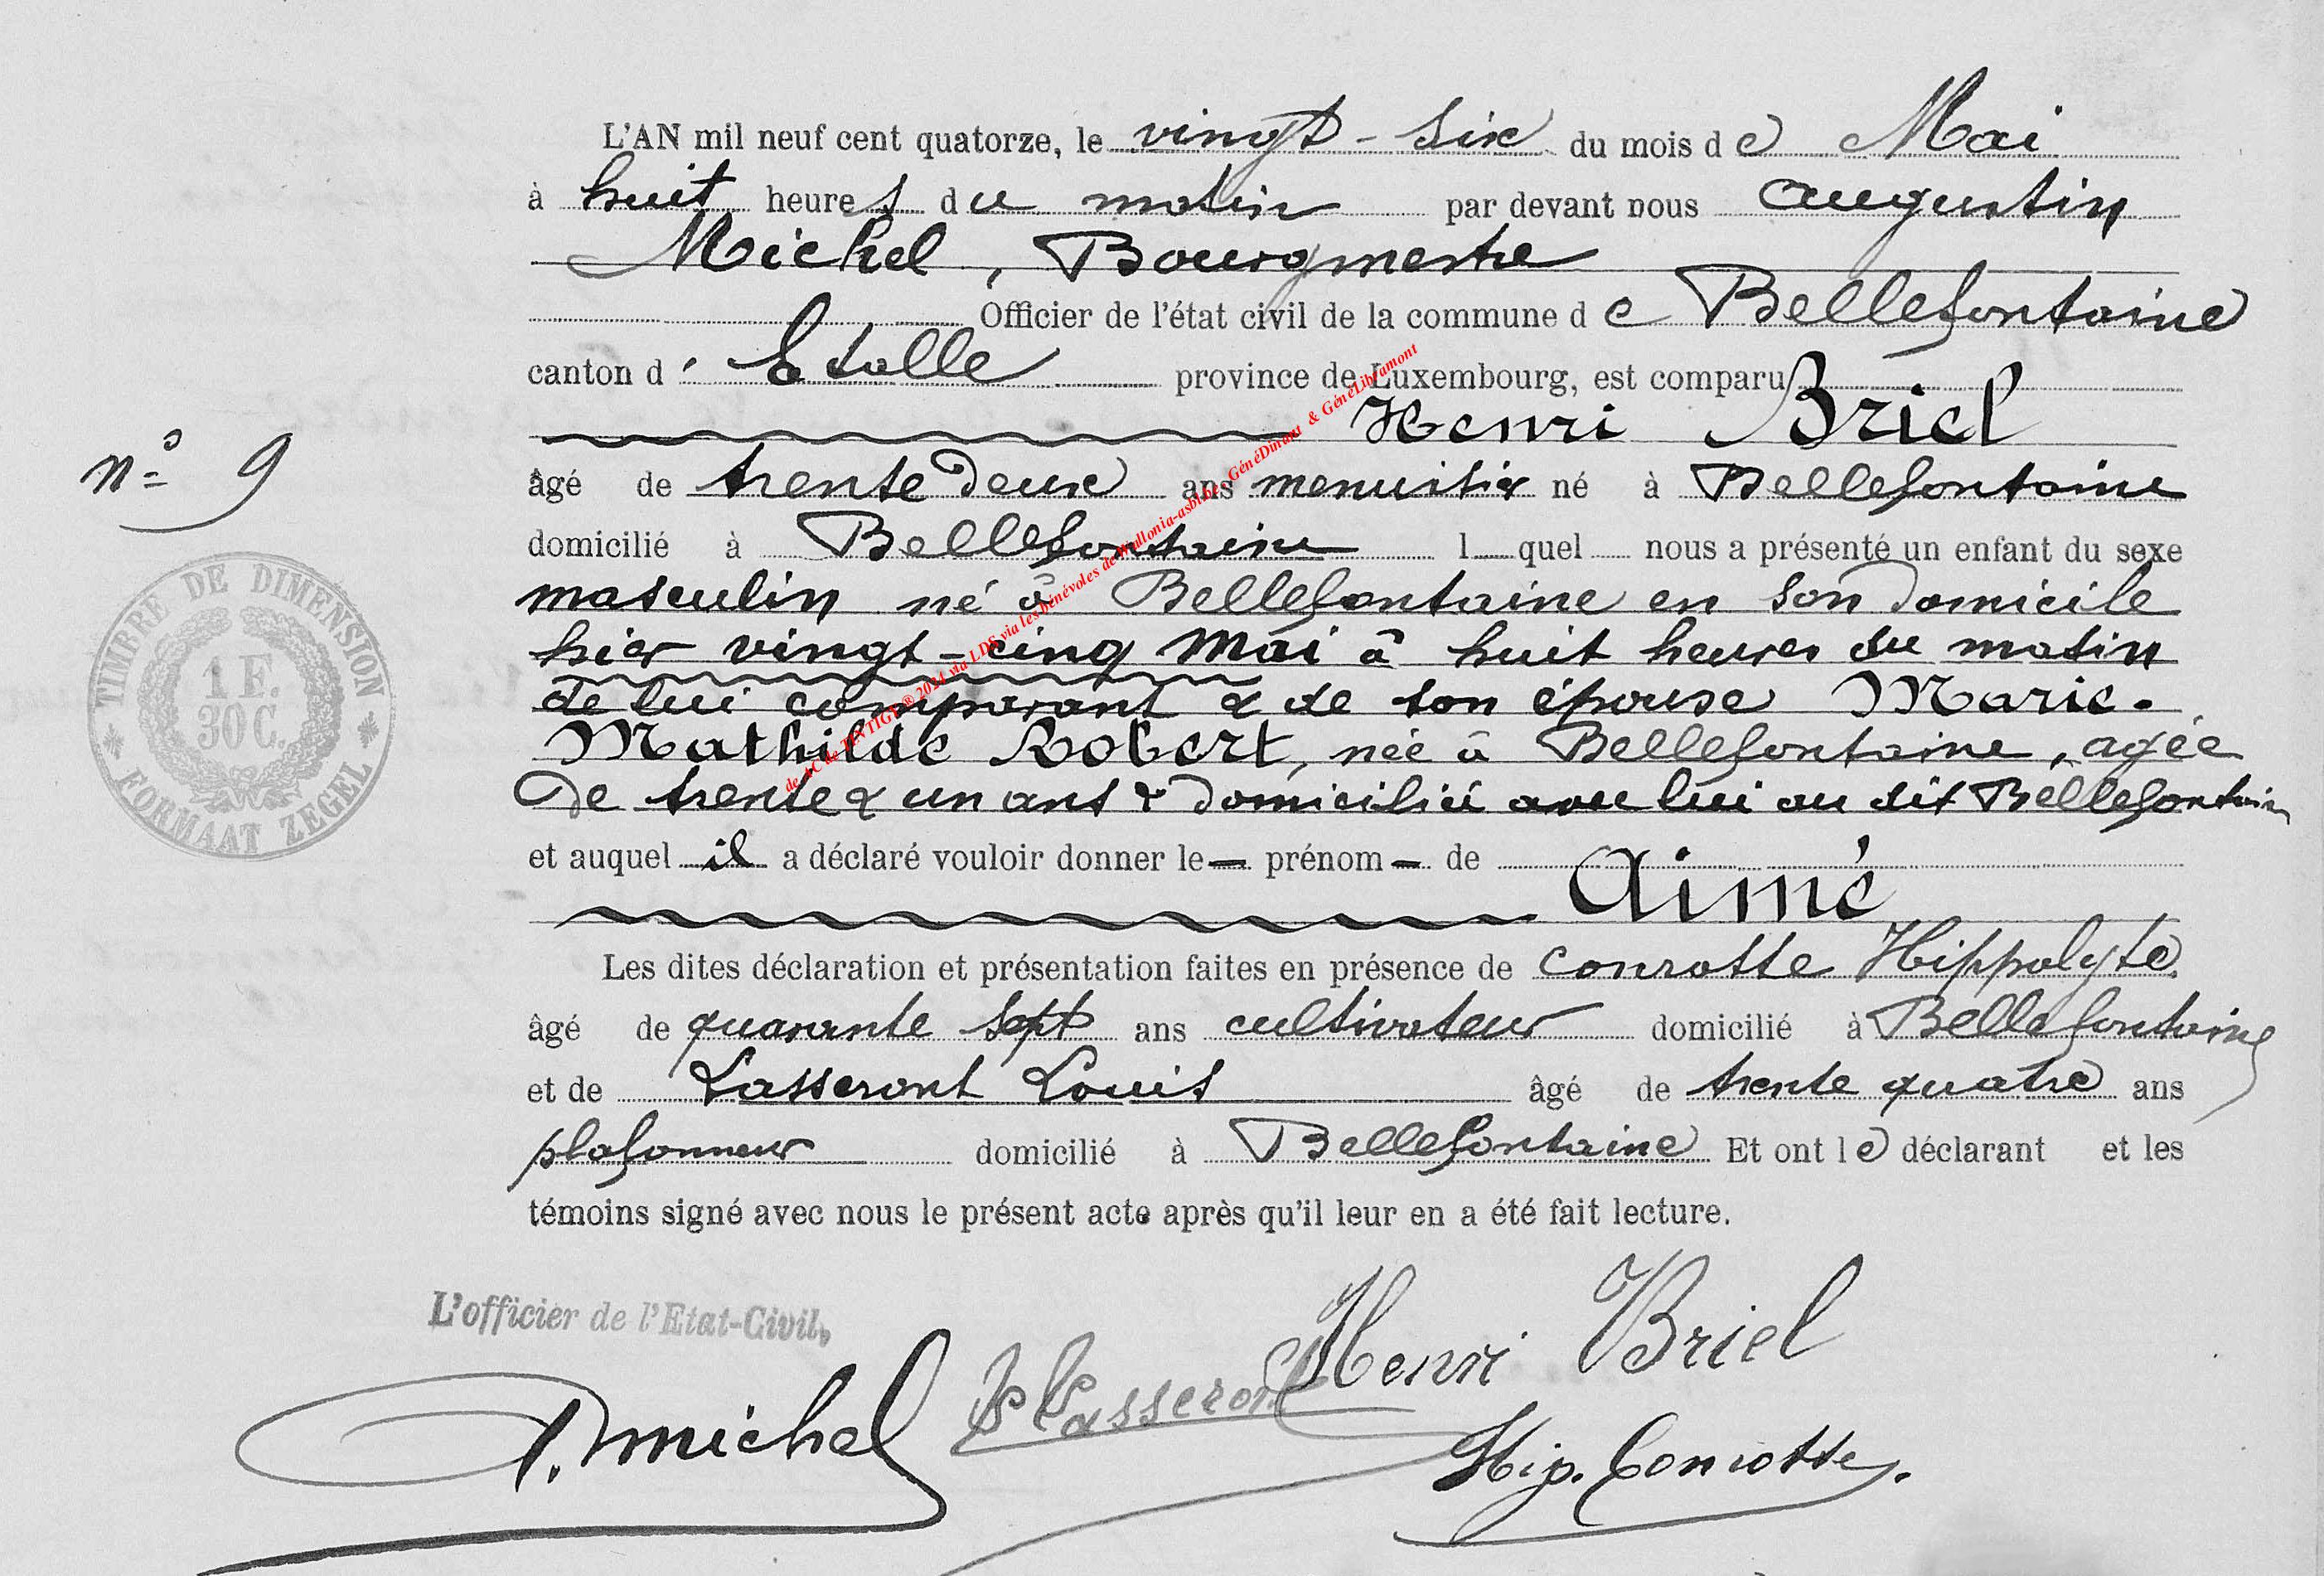 L'AN mil neuf cent quatorze, le vingt-six du mois de Mai
à huit heures du matin par devant nous Augustin
Michel, Bourgmestre
Officier de l'état civil de la commune de Bellefontaine
canton d'Etalle province de Luxembourg, est comparu
Henri Briel
n° 9
âgé de trente deux ans menuisier né à Bellefontaine
domicilié à Bellefontaine l quel nous a présenté un enfant du sexe
masculin né à Bellefontaine en son domicile
hier vingt-cinq Mai à huit heures du matin
de lui comparant & de son épouse Marie-
Mathilde Robert, née à Bellefontaine, agée
de trente & un ans & domiciliée avec lui au dit Bellefontaine
et auquel il a déclaré vouloir donner le prénom de
Aimé
Les dites déclaration et présentation faites en présence de Conrotte Hippolyte
âgé de quarante sept ans cultivateur domicilié à Bellefontaine
et de Lasseront Louis âgé de trente quatre ans
plafonneur domicilié à Bellefontaine Et ont le déclarant et les
témoins signé avec nous le présent acte après qu'il leur en a été fait lecture.
L'officier de l'Etat-Civil,
A. Michel
Ls Lasseront
Henri Briel
Hip. Conrotte.
TIMBRE DE DIMENSION
1 F.
30 C.
FORMAAT ZEGEL
via LDS via les bénévoles de Wallonia-asbl.be, GénéDinant & GénéLibramont